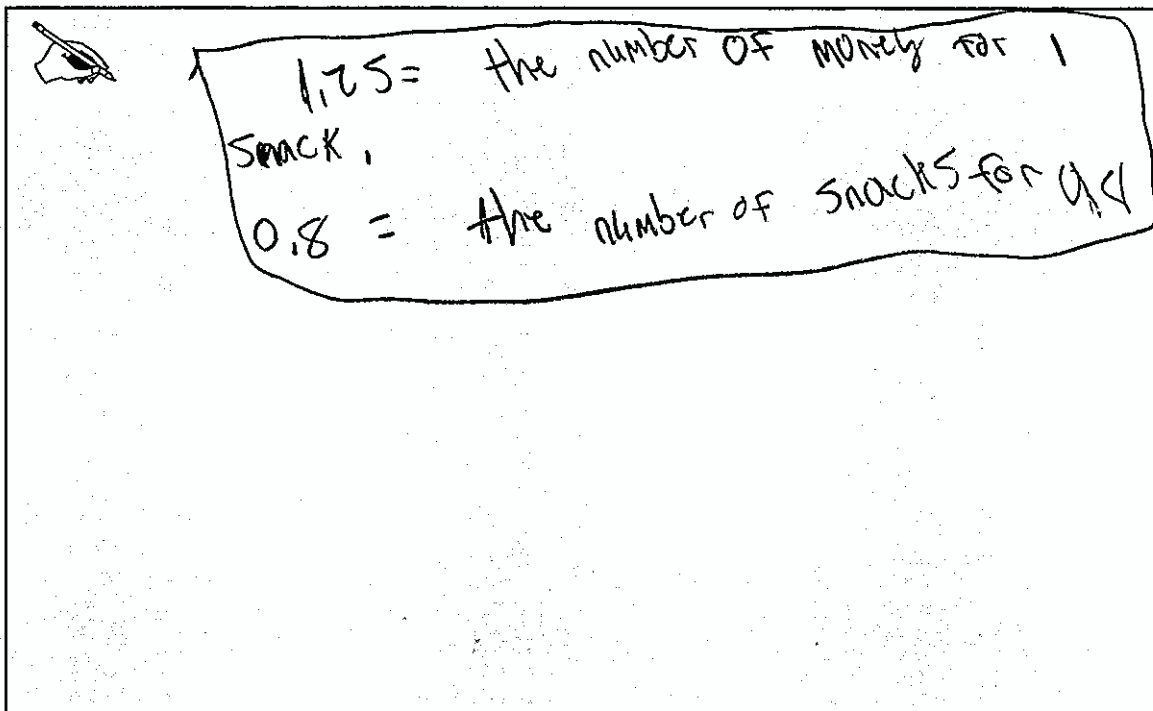 1.25 = the number of money for 1
snack.
0.8 = the number of snacks for